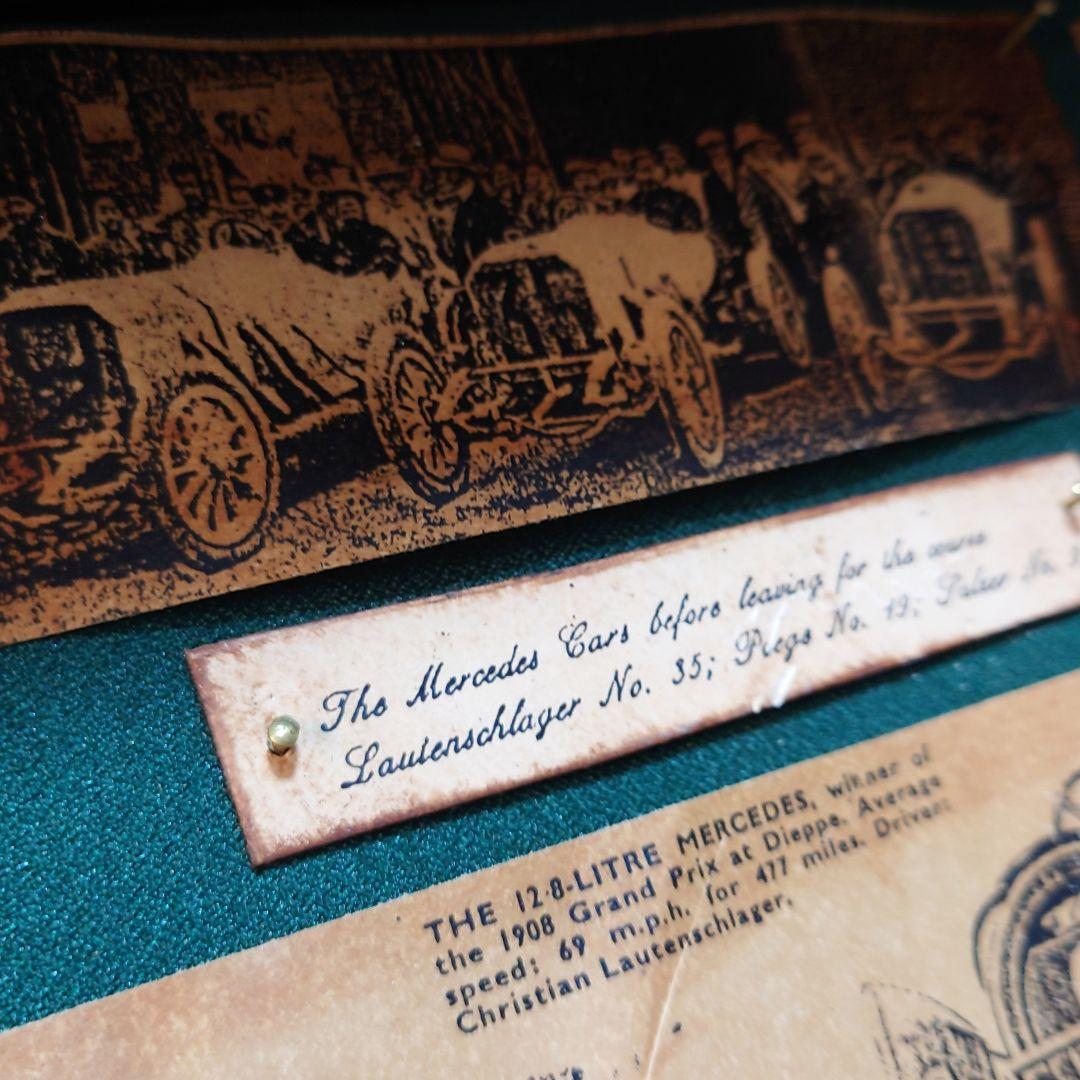 The Mercedes Cars before leaving for the course
Lautenschlager No. 35; Piegs No. 19; Salzer No.
THE 12·8-LITRE MERCEDES, winner of
the 1908 Grand Prix at Dieppe. Average
speed: 69 m.p.h. for 477 miles. Driver:
Christian Lautenschlager.